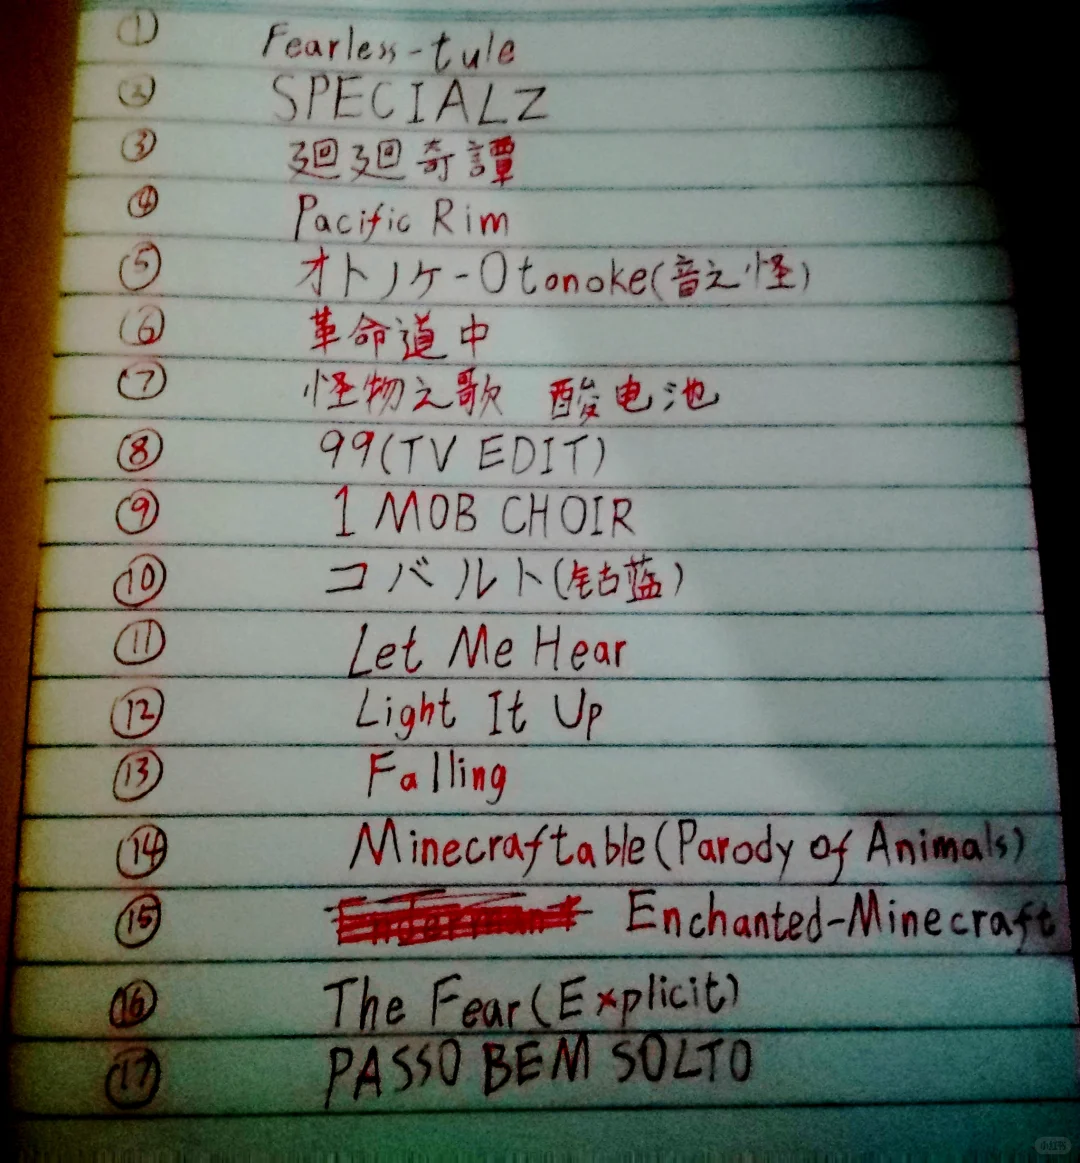 ① Fearless-tule
② SPECIALZ
③ 廻廻奇譚
④ Pacific Rim
⑤ オトノケ-Otonoke(音之怪)
⑥ 革命道中
⑦ 怪物之歌 酸电池
⑧ 99(TV EDIT)
⑨ 1 MOB CHOIR
⑩ コバルト(钴蓝)
⑪ Let Me Hear
⑫ Light It Up
⑬ Falling
⑭ Minecraftable(Parody of Animals)
⑮ Enchanted-Minecraft
⑯ The Fear(Explicit)
⑰ PASSO BEM SOLTO
小红书